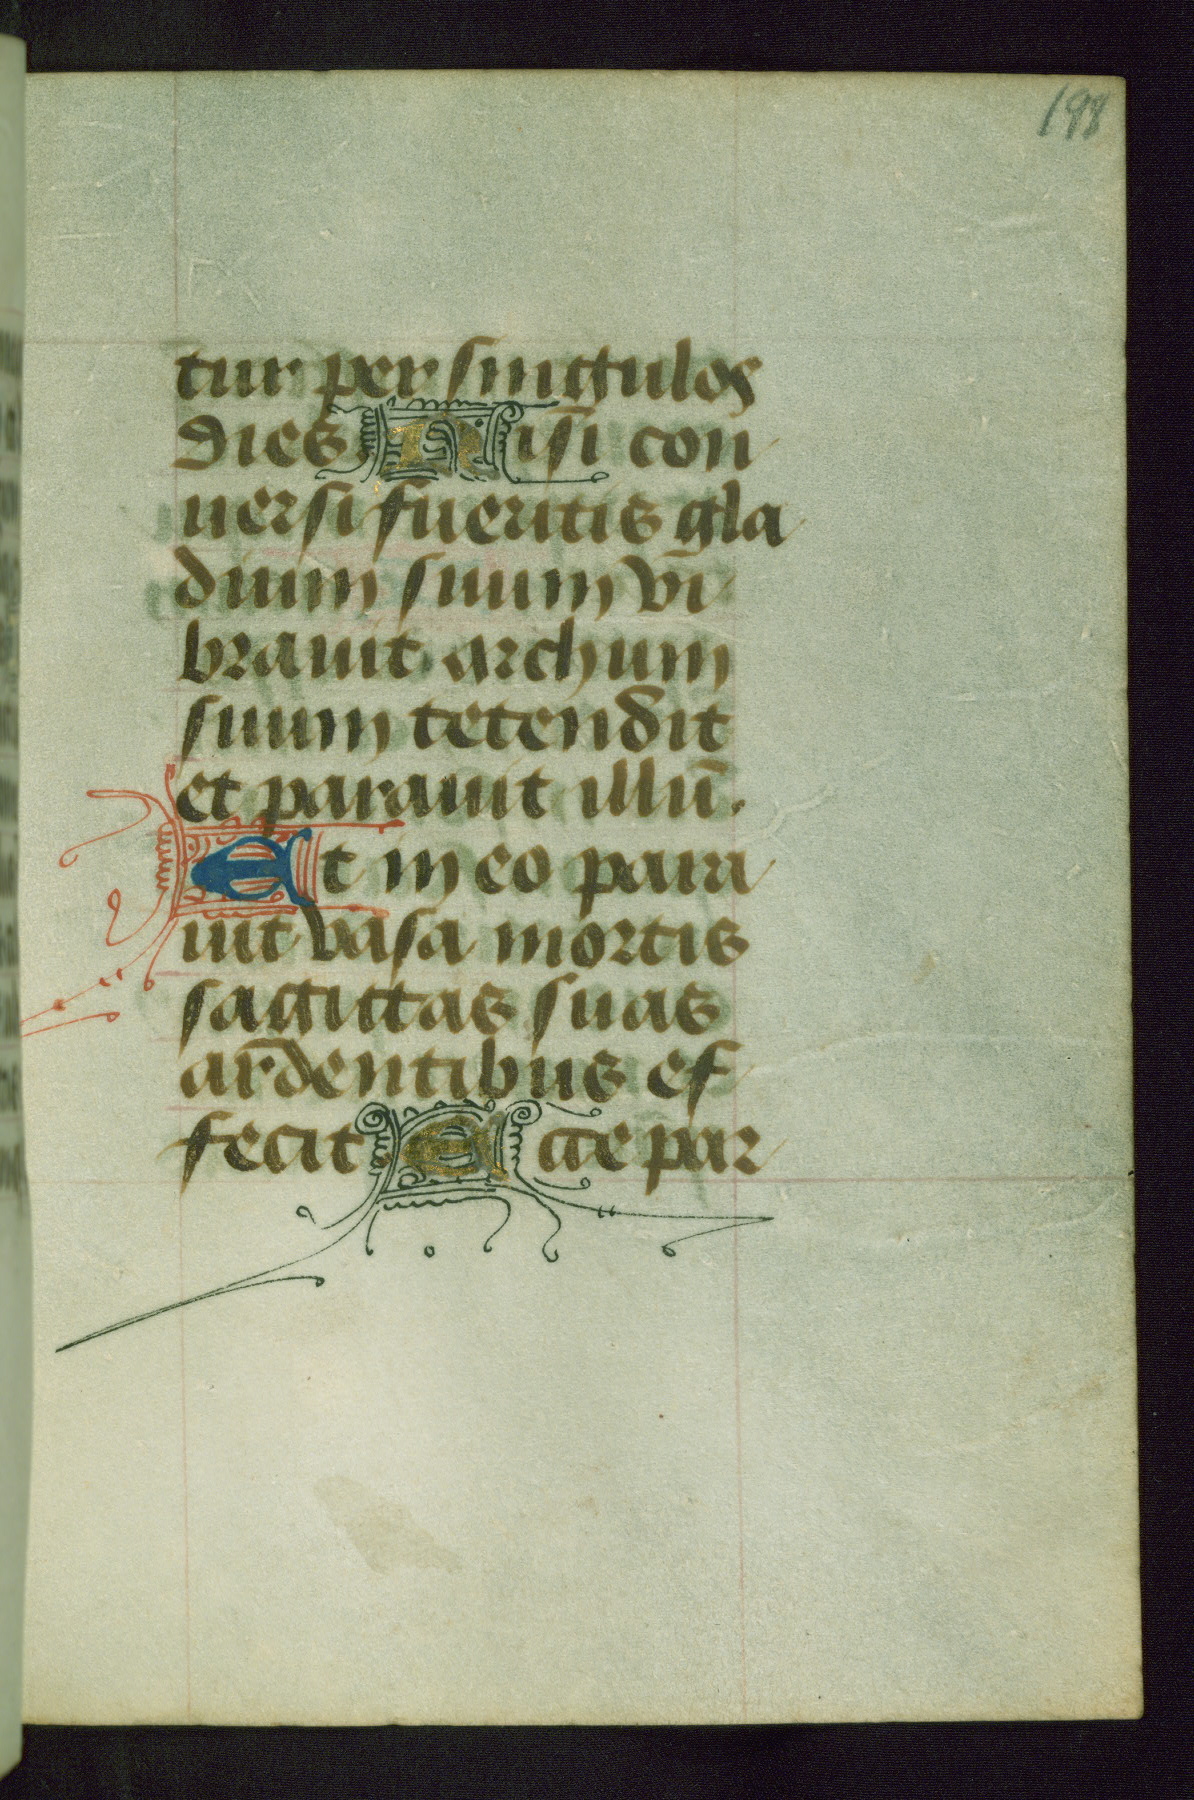 198
tur per singulos
dies Nisi con
uersi fueritis gla
dium suum vi
brauit archum
suum tetendit
et parauit illū.
Et in eo para
uit vasa mortis
sagittas suas
ardentibus ef
fecit Ecce par